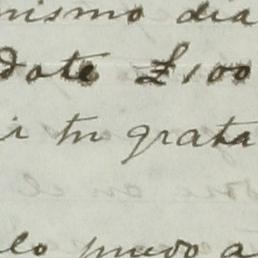 mismo dia
dote £100
ir tu grata
lo puedo a